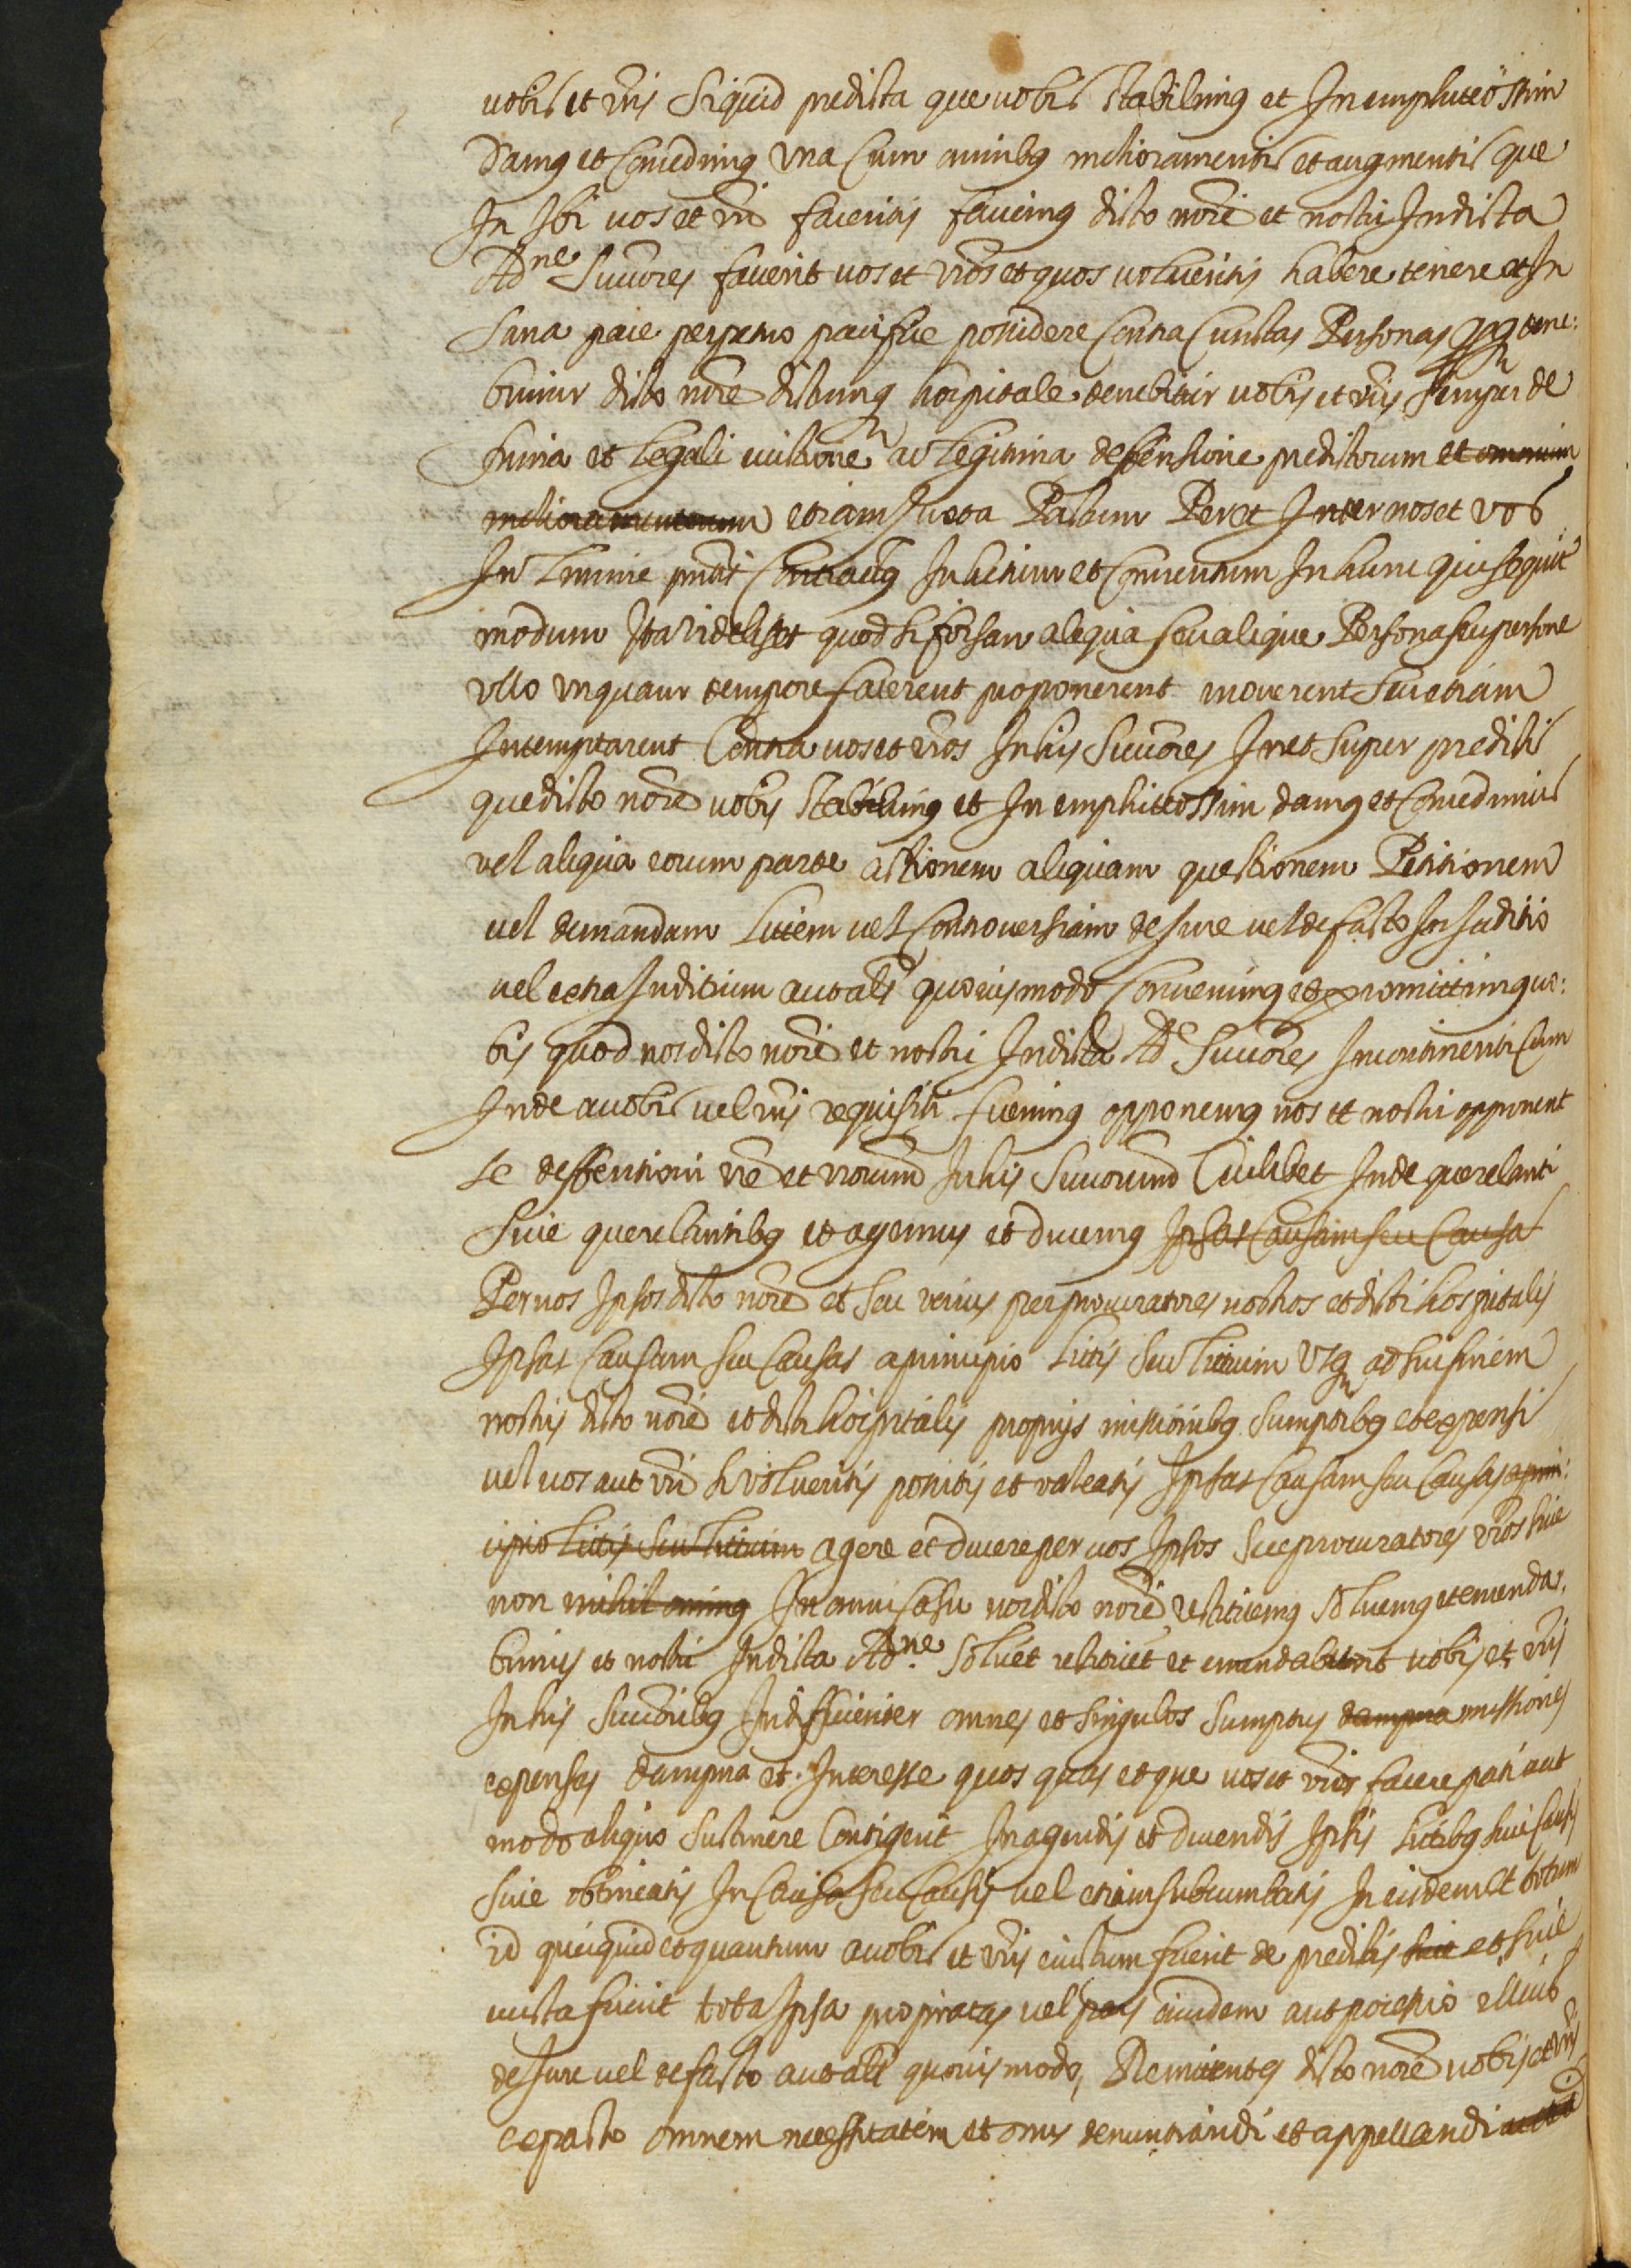 vobis et vris Siquid predicta que vobis stabilimq et In emphiteossim
Damq et Concedimq vna Cum omnibq melioramentis et augmentis que
In Ibi vos et vri faceritis facimq dicto nore et nostri In dicta
Adne Succores facient vos et vros et quos volueritis habere tenere et In
Sana pace perpetuo pacifice possidere Contra Cunctas Personas tene:
bimur dicto nore dictumq hospitale tenebitur vobis et vris Semper de
firma et legali euictione ac legitima deffensione predictorum et omnium
melioramentorum etiam Iuxta Pactum Per et Inter nos et vos
In limine pntis Contractq Inhitum et Conuentum In hunc qui sequit
modum Ita videlicet quod si forsan aliqua seu alique Persona seu persone
vllo vnquam tempore facerent proponerent mouerent Siue etiam
Intemptarent Contra vos et vros In his Succores In et Super predictis
que dicto nore vobis Stabilimq et In emphiteossim damq et Concedimus
vel aliqua eorum parte actionem aliquam questionem Petitionem
vel demandam Litem vel Controuersiam de Iure vel de facto In Juditio
vel extra Juditium aut als quouis modo Conuenimq et promittimq vo:
bis quod nos dicto nore et nostri In dicta Ade Succores Incontinenti Cum
Inde a vobis vel vris requisiti fuerimq opponemq nos et nostri opponent
se deffentioni vre et vrorum In his Succorum Cuilibet Inde querelanti
Siue querelantibq et agemus et ducemq Ipsas Causam seu Causas
Per nos Ipsos dicto nore et seu verius per procuratores nostros et dicti hospitalis
Ipsas Causam seu Causas a principio Litis Seu litium vsq ad hui finem
nostris dicto nore et dicti hospitalis proprijs missionibq Sumptibq et expensis
vel vos aut vri si volueritis positis et valeatis Ipsas Causam seu Causas a prin:
cipio Litis Seu litium agere et ducere per vos Ipsos Seu procuratores vros siue
non nihil ominq In omni Casu nos dicto nore restituemq Soluemq et emenda,
bimus et nostri In dicta Adne. Soluet restituet et emendabunt vobis et vris
In his Succoribq Indifficienter omnes et Singulos Sumptus dampna missiones
expensas dampna et Interesse quos quas et que vos et vros facere pati aut
modo aliquo Sustinere Contigerit In agendis et ducendis Ipsis Litibq siue Causis
Siue obtineatis In Causa seu Causis vel etiam subcumbatis In eisdem et totum
id quicquid et quantum a vobis et vris euictum fuerit de predictis siue et siue
euicta fuerit tota Ipsa proprietas vel pars eiusdem aut possessio illius
de Iure vel de facto aut als quouis modo, Remitentes dicto nore vobis et vris
ex pacto omnem necessitatem et onus denuntiandi et appellandi